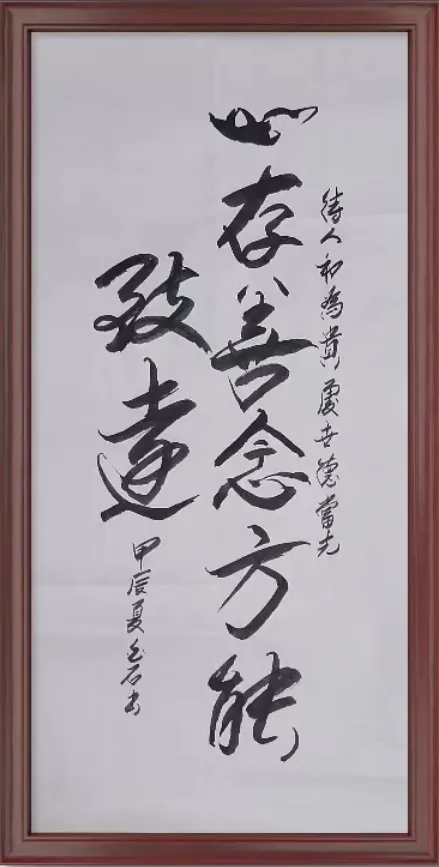 待人和為貴處世德當先
心存善念方能
致遠
甲辰夏石书